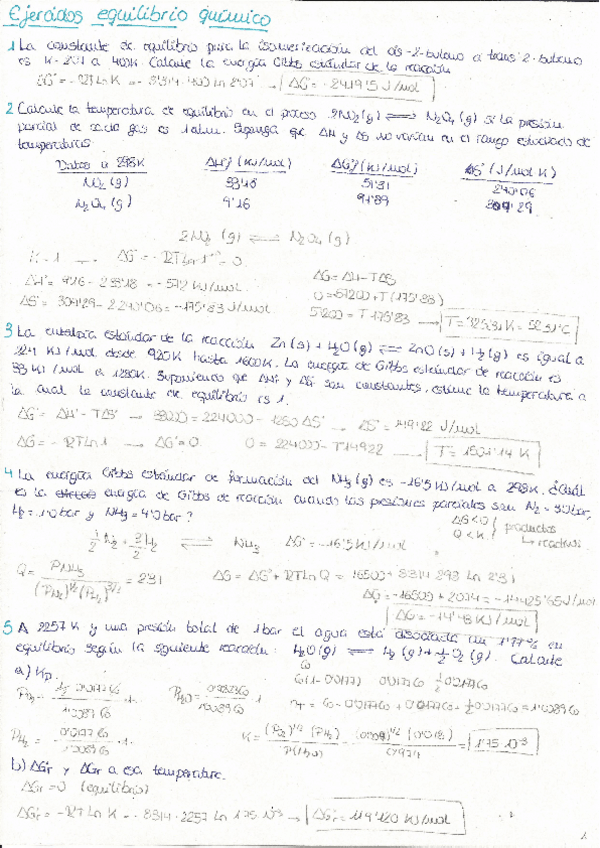 Ejercicios equilibrio químico
1 La constante de equilibrio para la isomerización del cis-2-buteno a trans-2-buteno
es K = 2'07 a 400K. Calcule la energía Gibbs estándar de la reacción
ΔG° = -RT Ln K = -8'314·400 Ln 2'07 → ΔG° = -2419'5 J/mol
2 Calcule la temperatura de equilibrio en el proceso 2NO2(g) ⇌ N2O4(g) si la presión
parcial de cada gas es 1 atm. Suponga que ΔH y ΔS no varían en el rango estudiado de
temperaturas
Datos a 298K ΔH°f (KJ/mol) ΔG°f (KJ/mol) ΔS° (J/mol K)
NO2 (g) 33'18 51'31 240'06
N2O4 (g) 9'16 97'89 304'29
2NO2 (g) ⇌ N2O4 (g)
K = 1 → ΔG° = -RT Ln 1 = 0
ΔH° = 9'16 - 2·33'18 = -57'2 KJ/mol
ΔS° = 304'29 - 2·240'06 = -175'83 J/mol
ΔG = ΔH - TΔS
0 = -57200 + T(175'83)
57200 = T 175'83 → T = 325'31 K = 52'31°C
3 La entalpía estándar de la reacción Zn(s) + H2O(g) ⇌ ZnO(s) + H2(g) es igual a
224 KJ/mol desde 920K hasta 1600K. La energía de Gibbs estándar de reacción es
33 KJ/mol a 1280K. Suponiendo que ΔH° y ΔS° son constantes, estime la temperatura a
la cual la constante de equilibrio es 1.
ΔG° = ΔH° - TΔS° → 33000 = 224000 - 1280 ΔS° → ΔS° = 149'22 J/mol
ΔG = -RT Ln 1 → ΔG° = 0 0 = 224000 - T 149'22 → T = 1501'14 K
4 La energía Gibbs estándar de formación del NH3(g) es -16'5 KJ/mol a 298K. ¿Cuál
es la energía de Gibbs de reacción cuando las presiones parciales son N2 = 3'0 bar,
H2 = 1'0 bar y NH3 = 4'0 bar?
ΔG<0 } productos
Q<K } ↳ reactivos
1/2 N2 + 3/2 H2 ⇌ NH3 ΔG° = -16'5 KJ/mol
Q = PNH3 / (PN2)^1/2 (PH2)^3/2 = 2'31 ΔG = ΔG° + RT Ln Q = -16500 + 8'314·298 Ln 2'31
ΔG = -16500 + 2074 = -14425'65 J/mol
ΔG = -14'43 KJ/mol
5 A 2257K y una presión total de 1 bar el agua está disociada un 1'77% en
equilibrio según la siguiente reacción: H2O(g) ⇌ H2(g) + 1/2 O2(g). Calcule
a) Kp.
b) ΔGr° y ΔGr a esa temperatura.
ΔGr = 0 (equilibrio)
ΔGr° = -RT Ln K = -8'314·2257 Ln 1'75·10⁻³ → ΔGr° = 119'120 KJ/mol